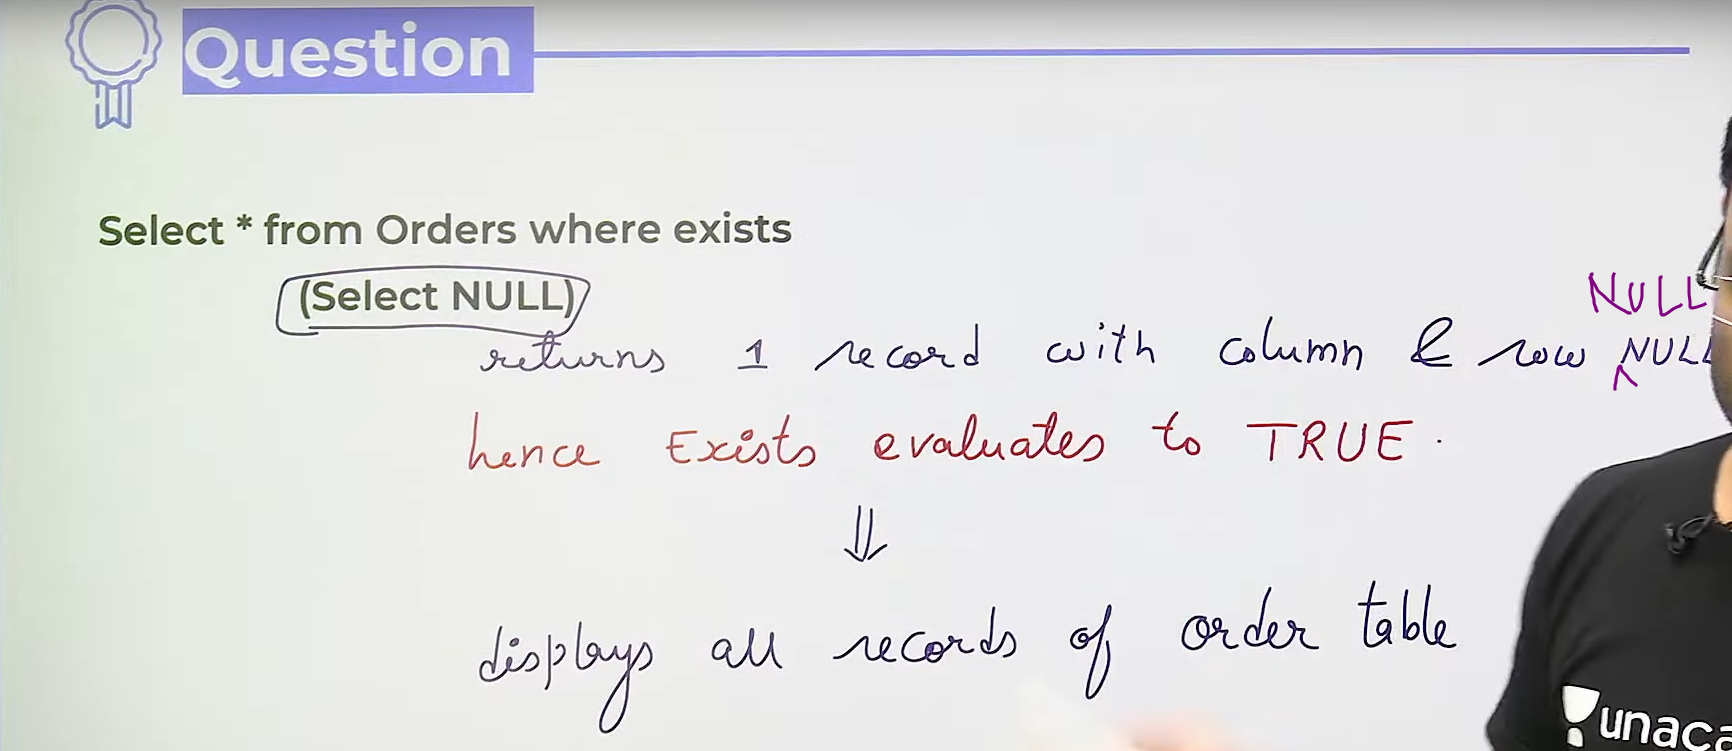 Question
Select * from Orders where exists
(Select NULL)
NULL
returns 1 record with column & row NULL
hence Exists evaluates to TRUE.
⇓
displays all records of order table
unaca